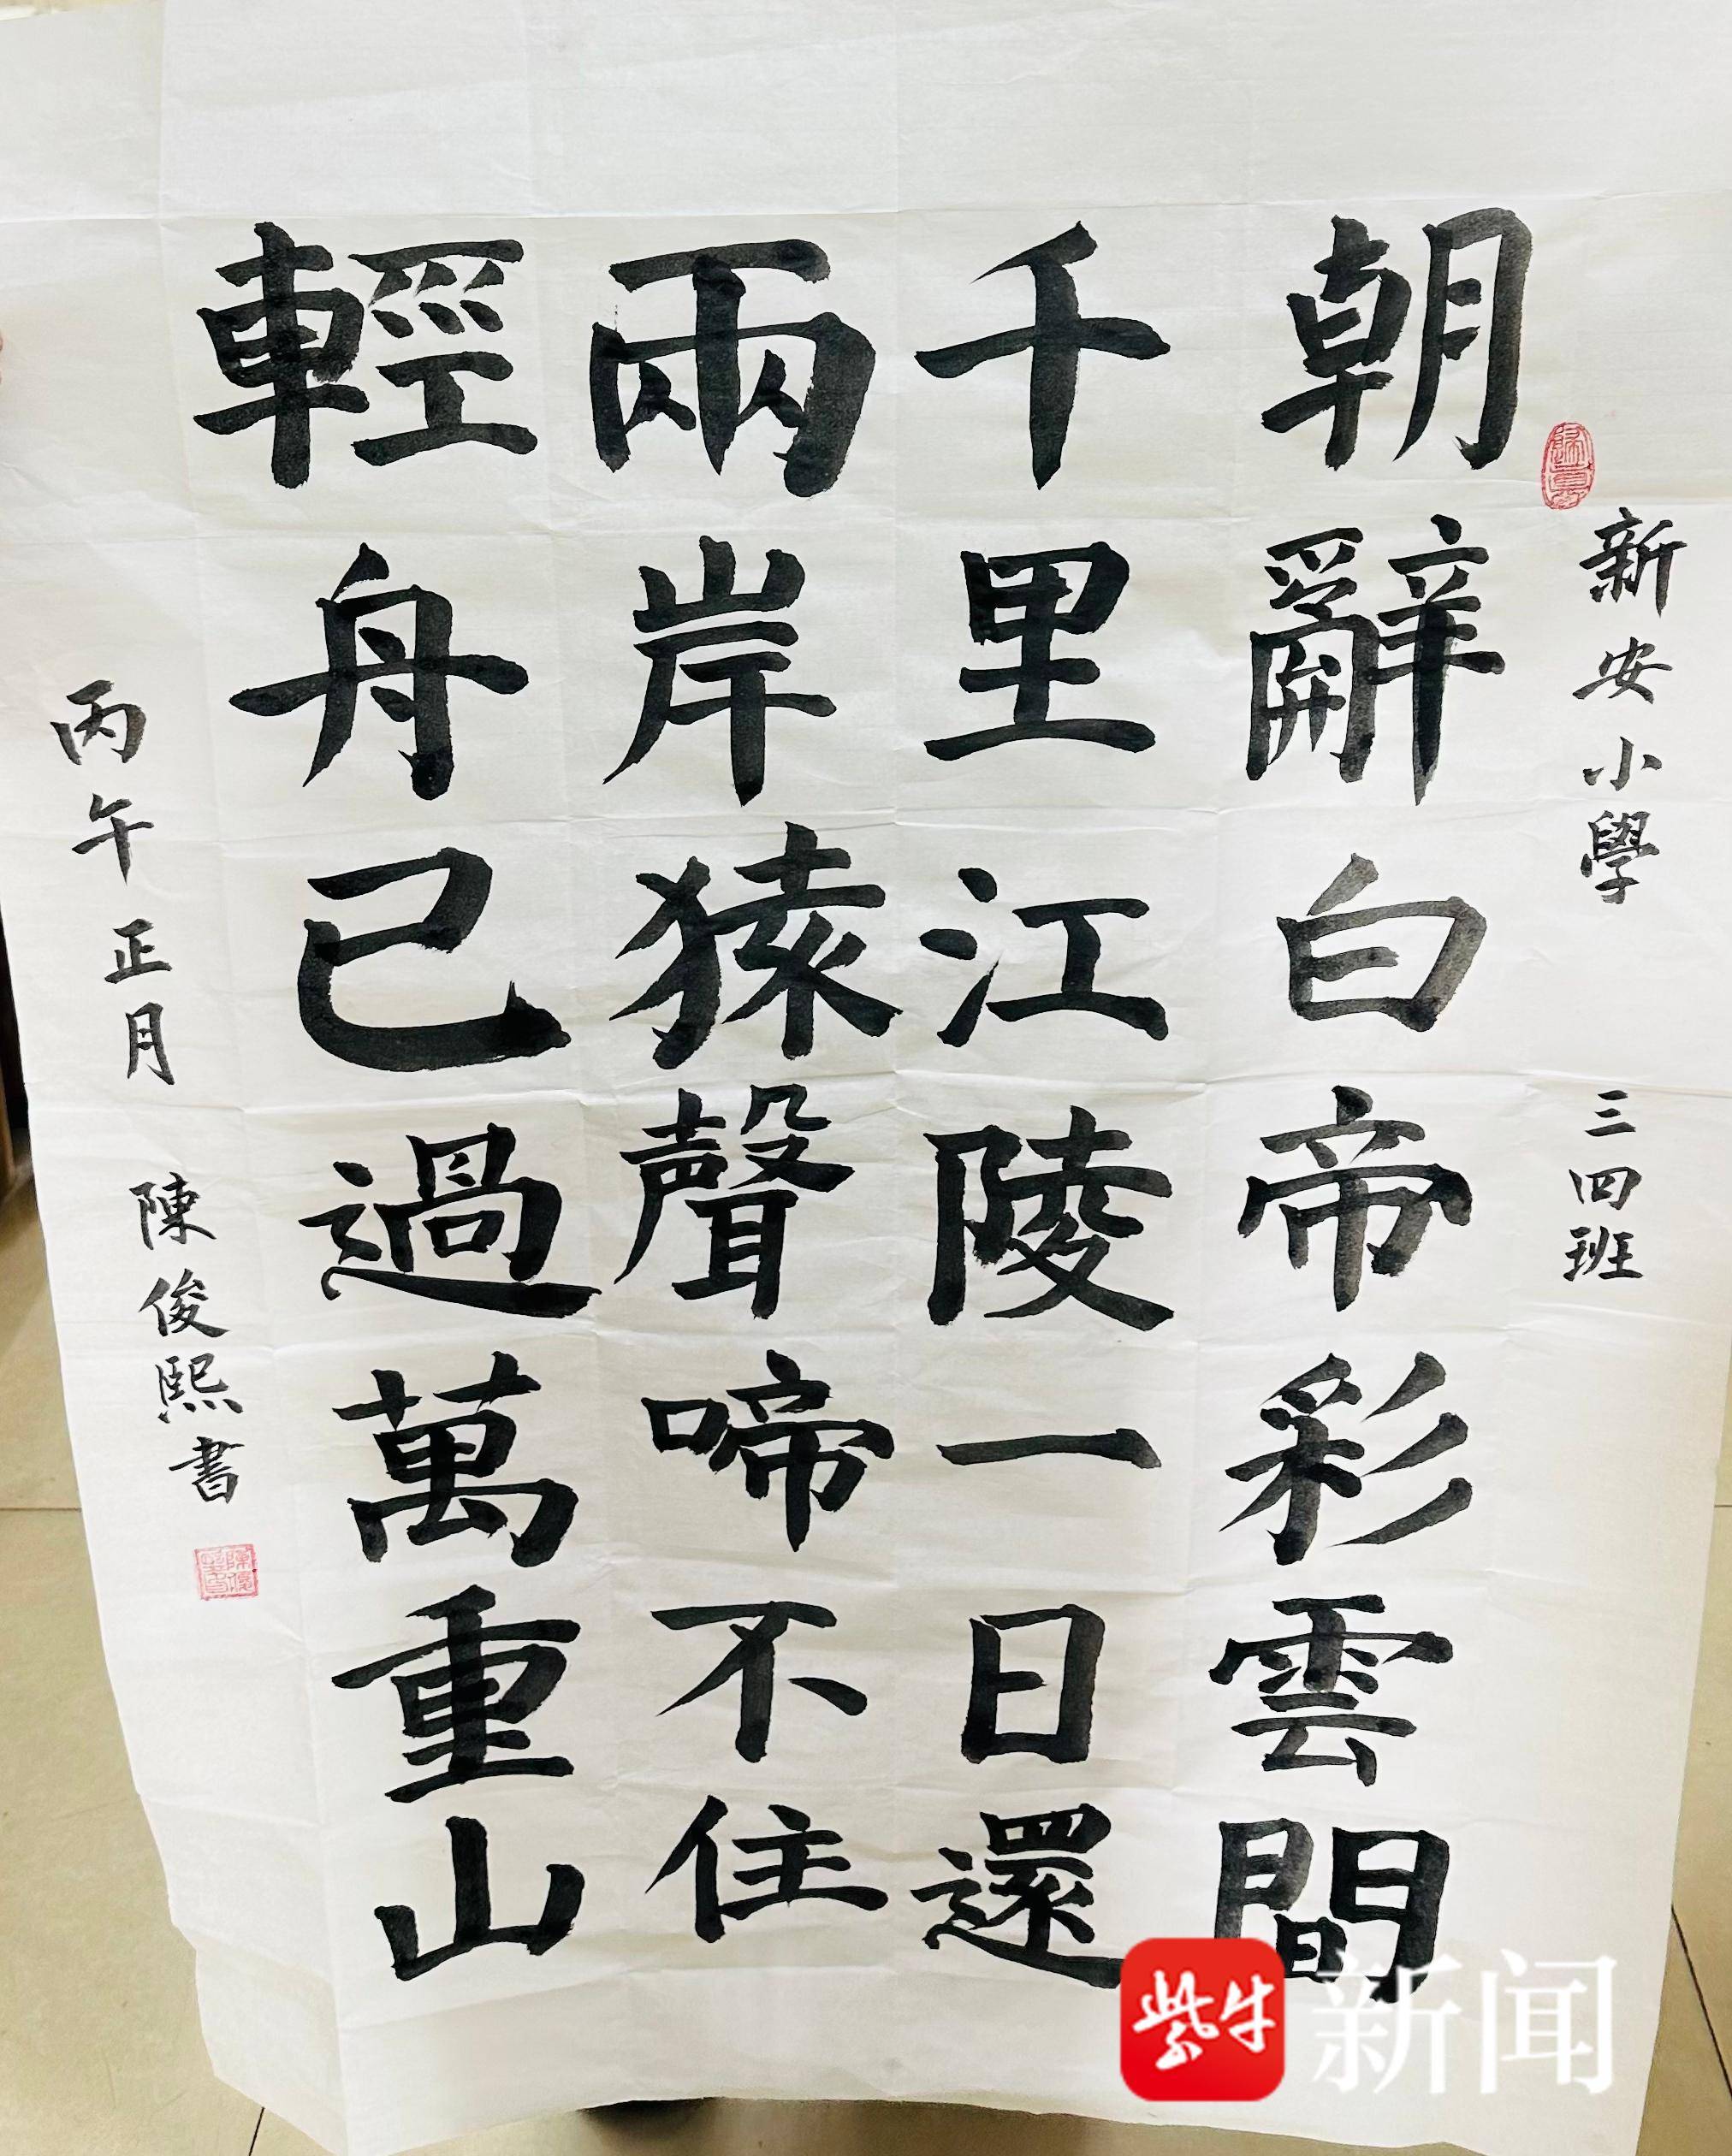 新安小學 三四班
朝辭白帝彩雲間
千里江陵一日還
兩岸猿聲啼不住
輕舟已過萬重山
丙午正月 陳俊熙書
紫牛新闻